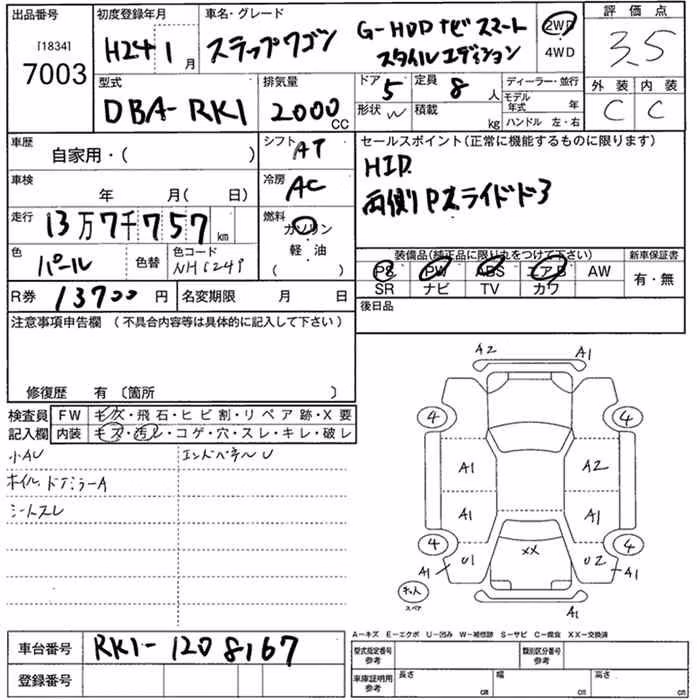 出品番号 初度登録年月 車名・グレード 評価点
[1834]
7003
H24 1月 ステップワゴン G-HDDナビ スマート
スタイル エディション
2WD
4WD
3.5
型式 排気量 ドア 定員 ディーラー・並行 外装 内装
DBA-RK1 2000CC 5 8人 モデル年式 年
形状 W 積載 kg ハンドル 左・右
C C
車歴 シフト セールスポイント(正常に機能するものに限ります)
自家用・( ) AT
HID
両側Pスライドドア
車検 冷房
年 月( 日) AC
走行 燃料
13万7千757km ガソリン
軽・油
( )
色 色替 色コード
パール NH624P
装備品(純正品に限り丸をつけて下さい) 新車保証書
PS PW ABS エアB AW 有・無
SR ナビ TV カワ
R券 13700円 名変期限 月 日 後日品
注意事項申告欄(不具合内容等は具体的に記入して下さい)
修復歴 有(箇所 )
検査員 FW キズ・飛石・ヒビ割・リペア跡・X要
記入欄 内装 キズ・汚レ・コゲ・穴・スレ・キレ・破レ
小AU エンドパネルU
ホイル、ドアミラーA
シートスレ
A2 A1
4 4
A1 A2
A1 A1
4 4
U1 XX U2
A1 A1
スペア
A1
A-キズ E-エクボ U-凹み W-補修跡 S-サビ C-腐食 XX-交換済
車台番号 RK1-1208167
登録番号
型式指定番号 参考 類別区分番号 参考
車庫証明用 参考 長さ cm 幅 cm 高さ cm